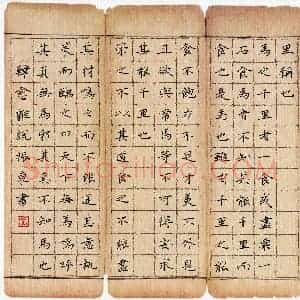 里稱也
馬之千里者一食或盡粟一
石食馬者不知其能千里而
食也是馬也雖有千里之能
食不飽力不足才美不外見
且欲與常馬等不可得安求
其能千里也
策之不以其道食之不能盡
其材鳴之而不能通其意執
策而臨之曰天下無馬嗚呼
其真無馬邪其真不知馬也
韓愈雜說 書